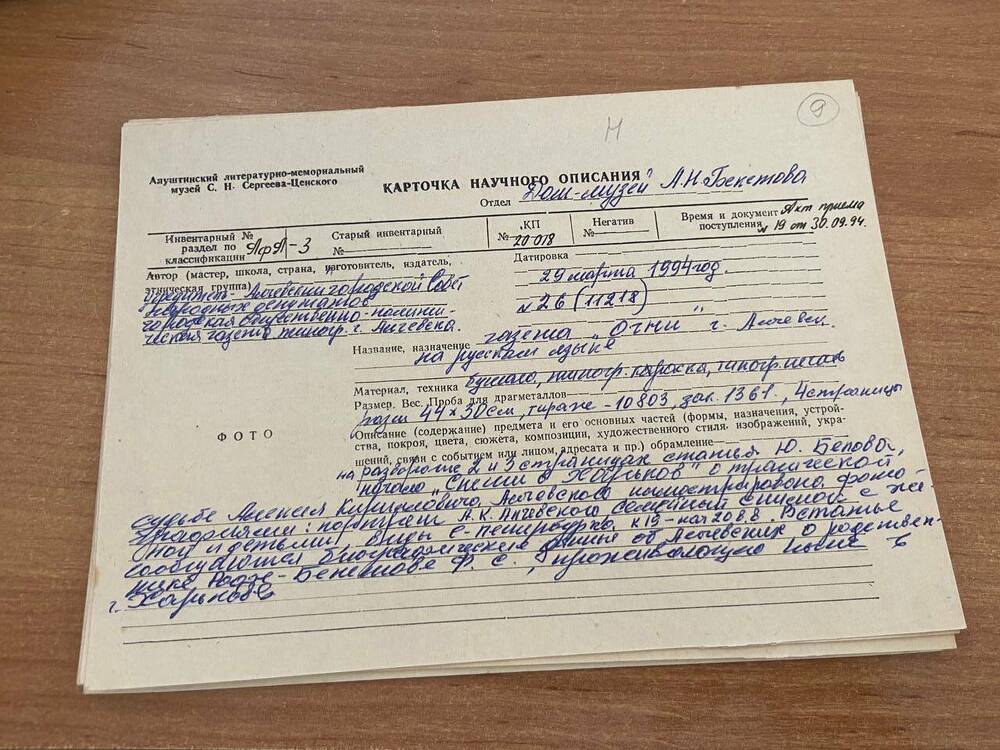 Н
9
Алуштинский литературно-мемориальный
музей С. Н. Сергеева-Ценского
КАРТОЧКА НАУЧНОГО ОПИСАНИЯ
Отдел Дом-музей А.Н. Бекетова
Инвентарный №
раздел по
классификации АфА-3
Старый инвентарный
№
КП
№ 20 018
Негатив
№
Время и документ Акт приема
поступления № 19 от 30.09.94.
Автор (мастер, школа, страна, изготовитель, издатель,
этническая группа)
учредитель - Алчевский городской Совет
народных депутатов
городская общественно-полити-
ческая газета типогр. г. Алчевска.
Датировка
29 марта 1994 год.
№ 26 (11218)
Название, назначение газета „Огни" г. Алчевск.
на русском языке
Материал, техника бумага, типогр. краска, типогр. печать
Размер. Вес. Проба для драгметаллов
разм 44×30 см, тираж - 10803, зак. 1361, 4 страницы
Описание (содержание) предмета и его основных частей (формы, назначения, устрой-
ства, покроя, цвета, сюжета, композиции, художественного стиля, изображений, укра-
шений, связи с событием или лицом, адресата и пр.) обрамление
ФОТО
на развороте 2 и 3 страницах статья Ю. Белова,
"Харьков" о трагической
судьбе Алексея Кирилловича Алчевского иллюстрирована фото-
графиями: портрет А.К. Алчевского семейный снимок с же-
ной и детьми, виды С-Петербурга, к 19 - нач 20 в.в. В статье
сообщаются биографические данные об Алчевских о родствен-
нике Ф. С., проживающего ныне в
г. Харькове